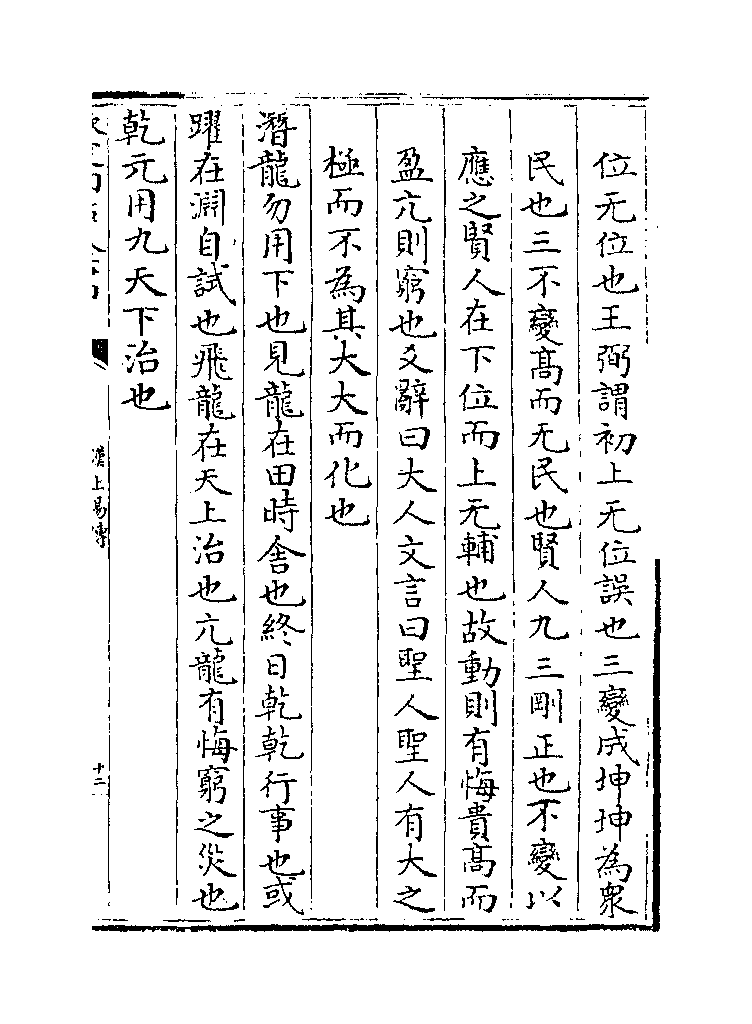 位无位也王弼謂初上无位誤也三變成坤坤為衆
民也三不變髙而无民也賢人九三剛正也不變以
應之賢人在下位而上无輔也故動則有悔貴髙而
盈亢則窮也爻辭曰大人文言曰聖人聖人有大之
極而不為其大大而化也
潛龍勿用下也見龍在田時舍也終日乾乾行事也或
躍在淵自試也飛龍在天上治也亢龍有悔窮之災也
乾元用九天下治也
漢上易傳
十二